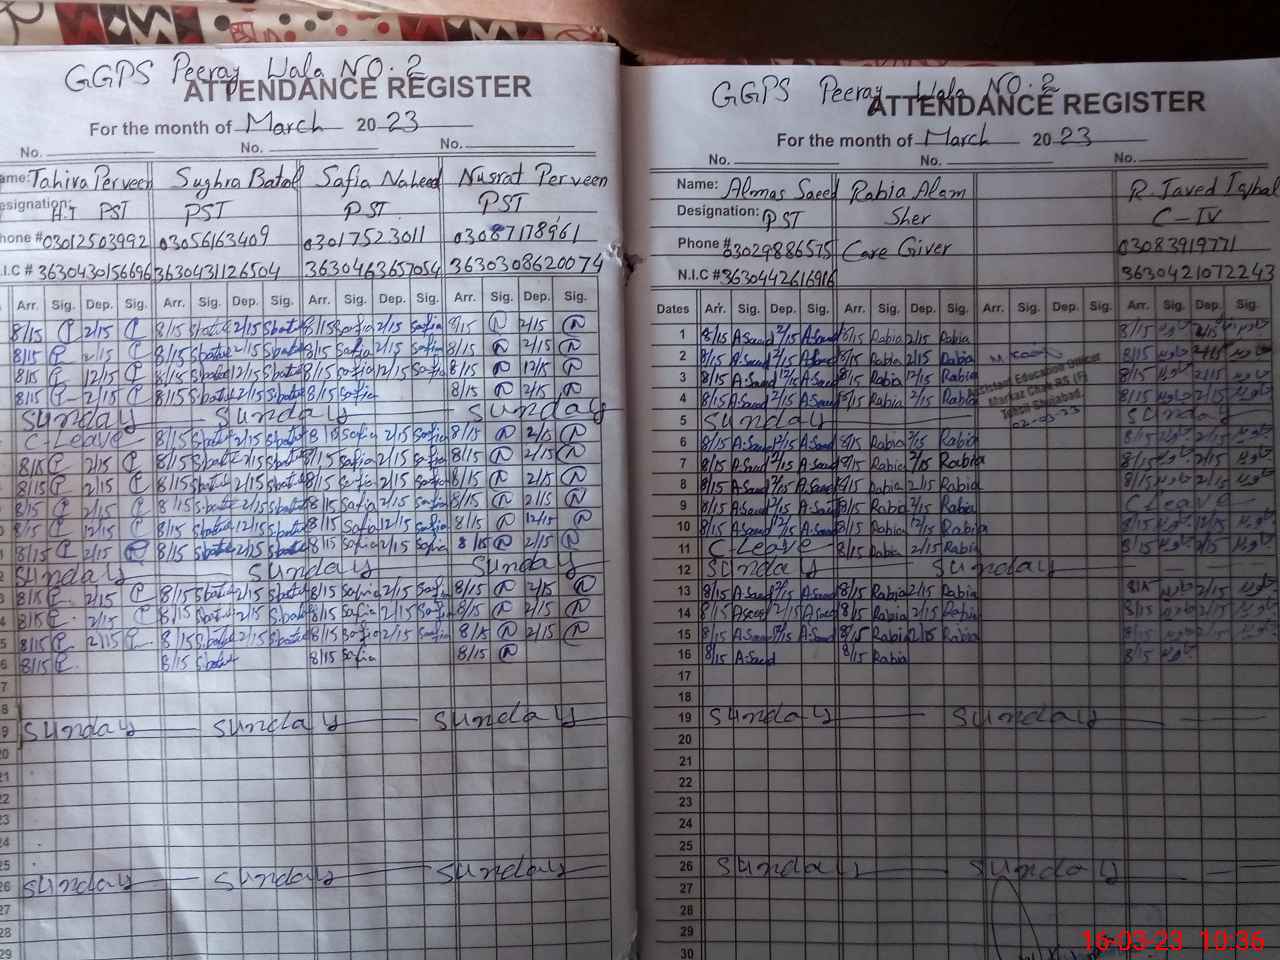 GGPS Peeray Wala NO.2
ATTENDANCE REGISTER
For the month of March 2023
No. No. No.
ame: Tahira Perveen Sughra Batol Safia Naheed Nusrat Perveen
esignation: H.T PST PST PST PST
hone # 03012503992 03056163409 03017523011 03087178961
.I.C # 3630430156696 3630431126504 3630463657054 3630308620074
Arr. Sig. Dep. Sig. Arr. Sig. Dep. Sig. Arr. Sig. Dep. Sig. Arr. Sig. Dep. Sig.
8/15 2/15 8/15 Sbatul 2/15 Sbatul 8/15 Safia 2/15 Safia 8/15 N 2/15 N
8/15 2/15 8/15 Sbatul 2/15 Sbatul 8/15 Safia 2/15 Safia 8/15 N 2/15 N
8/15 12/15 8/15 Sbatul 12/15 Sbatul 8/15 Safia 12/15 Safia 8/15 N 12/15 N
8/15 2/15 8/15 Sbatul 2/15 Sbatul 8/15 Safia 8/15 N 2/15 N
Sunday Sunday Sunday
C-Leave 8/15 Sbatul 2/15 Sbatul 8/15 Safia 2/15 Safia 8/15 N 2/15 N
8/15 2/15 8/15 Sbatul 2/15 Sbatul 8/15 Safia 2/15 Safia 8/15 N 2/15 N
8/15 2/15 8/15 Sbatul 2/15 Sbatul 8/15 Safia 2/15 Safia 8/15 N 2/15 N
8/15 2/15 8/15 Sbatul 2/15 Sbatul 8/15 Safia 2/15 Safia 8/15 N 2/15 N
8/15 12/15 8/15 Sbatul 12/15 Sbatul 8/15 Safia 12/15 Safia 8/15 N 12/15 N
8/15 2/15 8/15 Sbatul 2/15 Sbatul 8/15 Safia 2/15 Safia 8/15 N 2/15 N
2 Sunday Sunday Sunday
3 8/15 2/15 8/15 Sbatul 2/15 Sbatul 8/15 Safia 2/15 Safia 8/15 N 2/15 N
4 8/15 2/15 8/15 Sbatul 2/15 Sbatul 8/15 Safia 2/15 Safia 8/15 N 2/15 N
5 8/15 2/15 8/15 Sbatul 2/15 Sbatul 8/15 Safia 2/15 Safia 8/15 N 2/15 N
6 8/15 8/15 Sbatul 8/15 Safia 8/15 N
7
8
9 Sunday Sunday Sunday
20
21
22
23
24
25
26 Sunday Sunday Sunday
27
28
29
GGPS Peeray Wala NO.2
ATTENDANCE REGISTER
For the month of March 2023
No. No. No.
Name: Almas Saeed Rabia Alam R. Javed Iqbal
Designation: PST Sher C-IV
Phone # 03029886575 Care Giver 03083919771
N.I.C # 3630442616916 3630421072243
Dates Arr. Sig. Dep. Sig. Arr. Sig. Dep. Sig. Arr. Sig. Dep. Sig. Arr. Sig. Dep. Sig.
1 8/15 A.Saeed 2/15 A.Saeed 8/15 Rabia 2/15 Rabia 8/15 2/15
2 8/15 A.Saeed 2/15 A.Saeed 8/15 Rabia 2/15 Rabia 8/15 2/15
Assistant Education Officer
3 8/15 A.Saeed 12/15 A.Saeed 8/15 Rabia 12/15 Rabia 8/15 2/15
4 8/15 A.Saeed 2/15 A.Saeed 8/15 Rabia 2/15 Rabia 8/15 2/15
02-03-23
5 Sunday Sunday
6 8/15 A.Saeed 2/15 A.Saeed 8/15 Rabia 2/15 Rabia 8/15 2/15
7 8/15 A.Saeed 2/15 A.Saeed 8/15 Rabia 2/15 Rabia 8/15 2/15
8 8/15 A.Saeed 2/15 A.Saeed 8/15 Rabia 2/15 Rabia 8/15 2/15
9 8/15 A.Saeed 2/15 A.Saeed 8/15 Rabia 2/15 Rabia C.Leave
10 8/15 A.Saeed 12/15 A.Saeed 8/15 Rabia 12/15 Rabia 8/15 12/15
11 C-Leave 8/15 Rabia 2/15 Rabia 8/15 2/15
12 Sunday Sunday
13 8/15 A.Saeed 2/15 A.Saeed 8/15 Rabia 2/15 Rabia 8/15 2/15
14 8/15 A.Saeed 2/15 A.Saeed 8/15 Rabia 2/15 Rabia 8/15 2/15
15 8/15 A.Saeed 2/15 A.Saeed 8/15 Rabia 2/15 Rabia 8/15 2/15
16 8/15 A.Saeed 8/15 Rabia 8/15
17
18
19 Sunday Sunday
20
21
22
23
24
25
26 Sunday Sunday
27
28
29
30
16-03-23 10:36